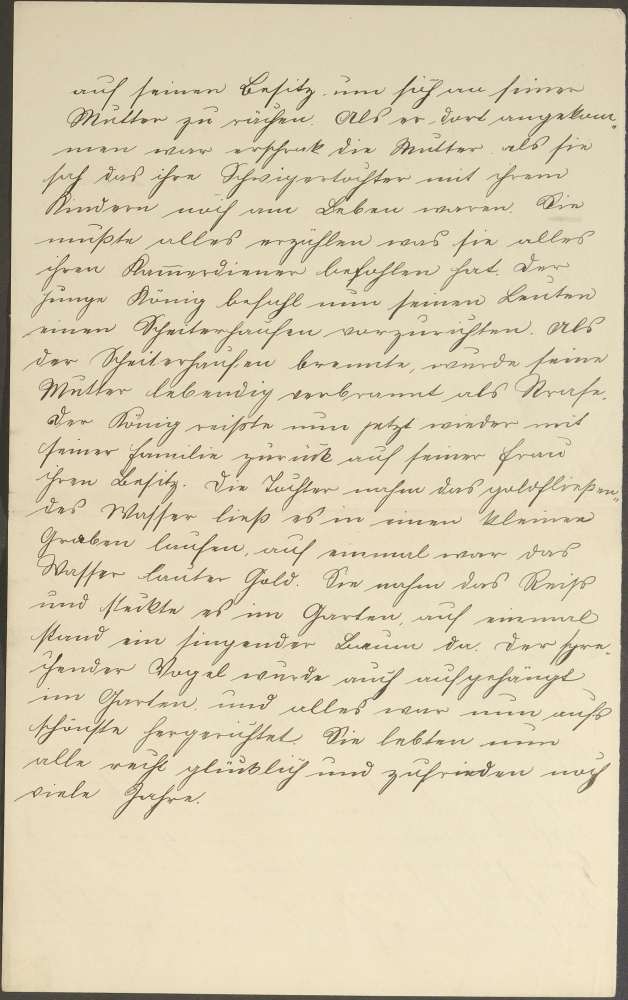 auf seinen Besitz um sich an seiner
Mutter zu rächen. Als er dort angekom„
men war erschrak die Mutter als sie
sah das ihre Schwigertochter mit ihrem
Kindern noch am Leben waren. Sie
mußte alles erzählen was sie alles
ihren Kam̅erdiener befohlen hat. Der
junge König befahl nun seinen Leuten
einen Scheiterhaufen vorzurichten. Als
der Scheiterhaufen brennte, wurde seine
Mutter lebendig verbrannt als Strafe.
Der König reißte nun jetzt wieder mit
seiner Familie zurük auf seiner Frau
ihren Besitz. Die Tochter nahm das goldfließen„
des Wasser ließ es in einen kleinen
Graben laufen, auf einmal war das
Wasser lauter Gold. Sie nahm das Reiß
und steckte es im Garten, auf einmal
stand ein singender Baum da. Der spre„
chender Vogel wurde auch aufgehängt
im Garten, und alles war nun aufs
schönste hergerichtet. Sie lebten nun
alle recht glücklich und zufrieden noch
viele Jahre.